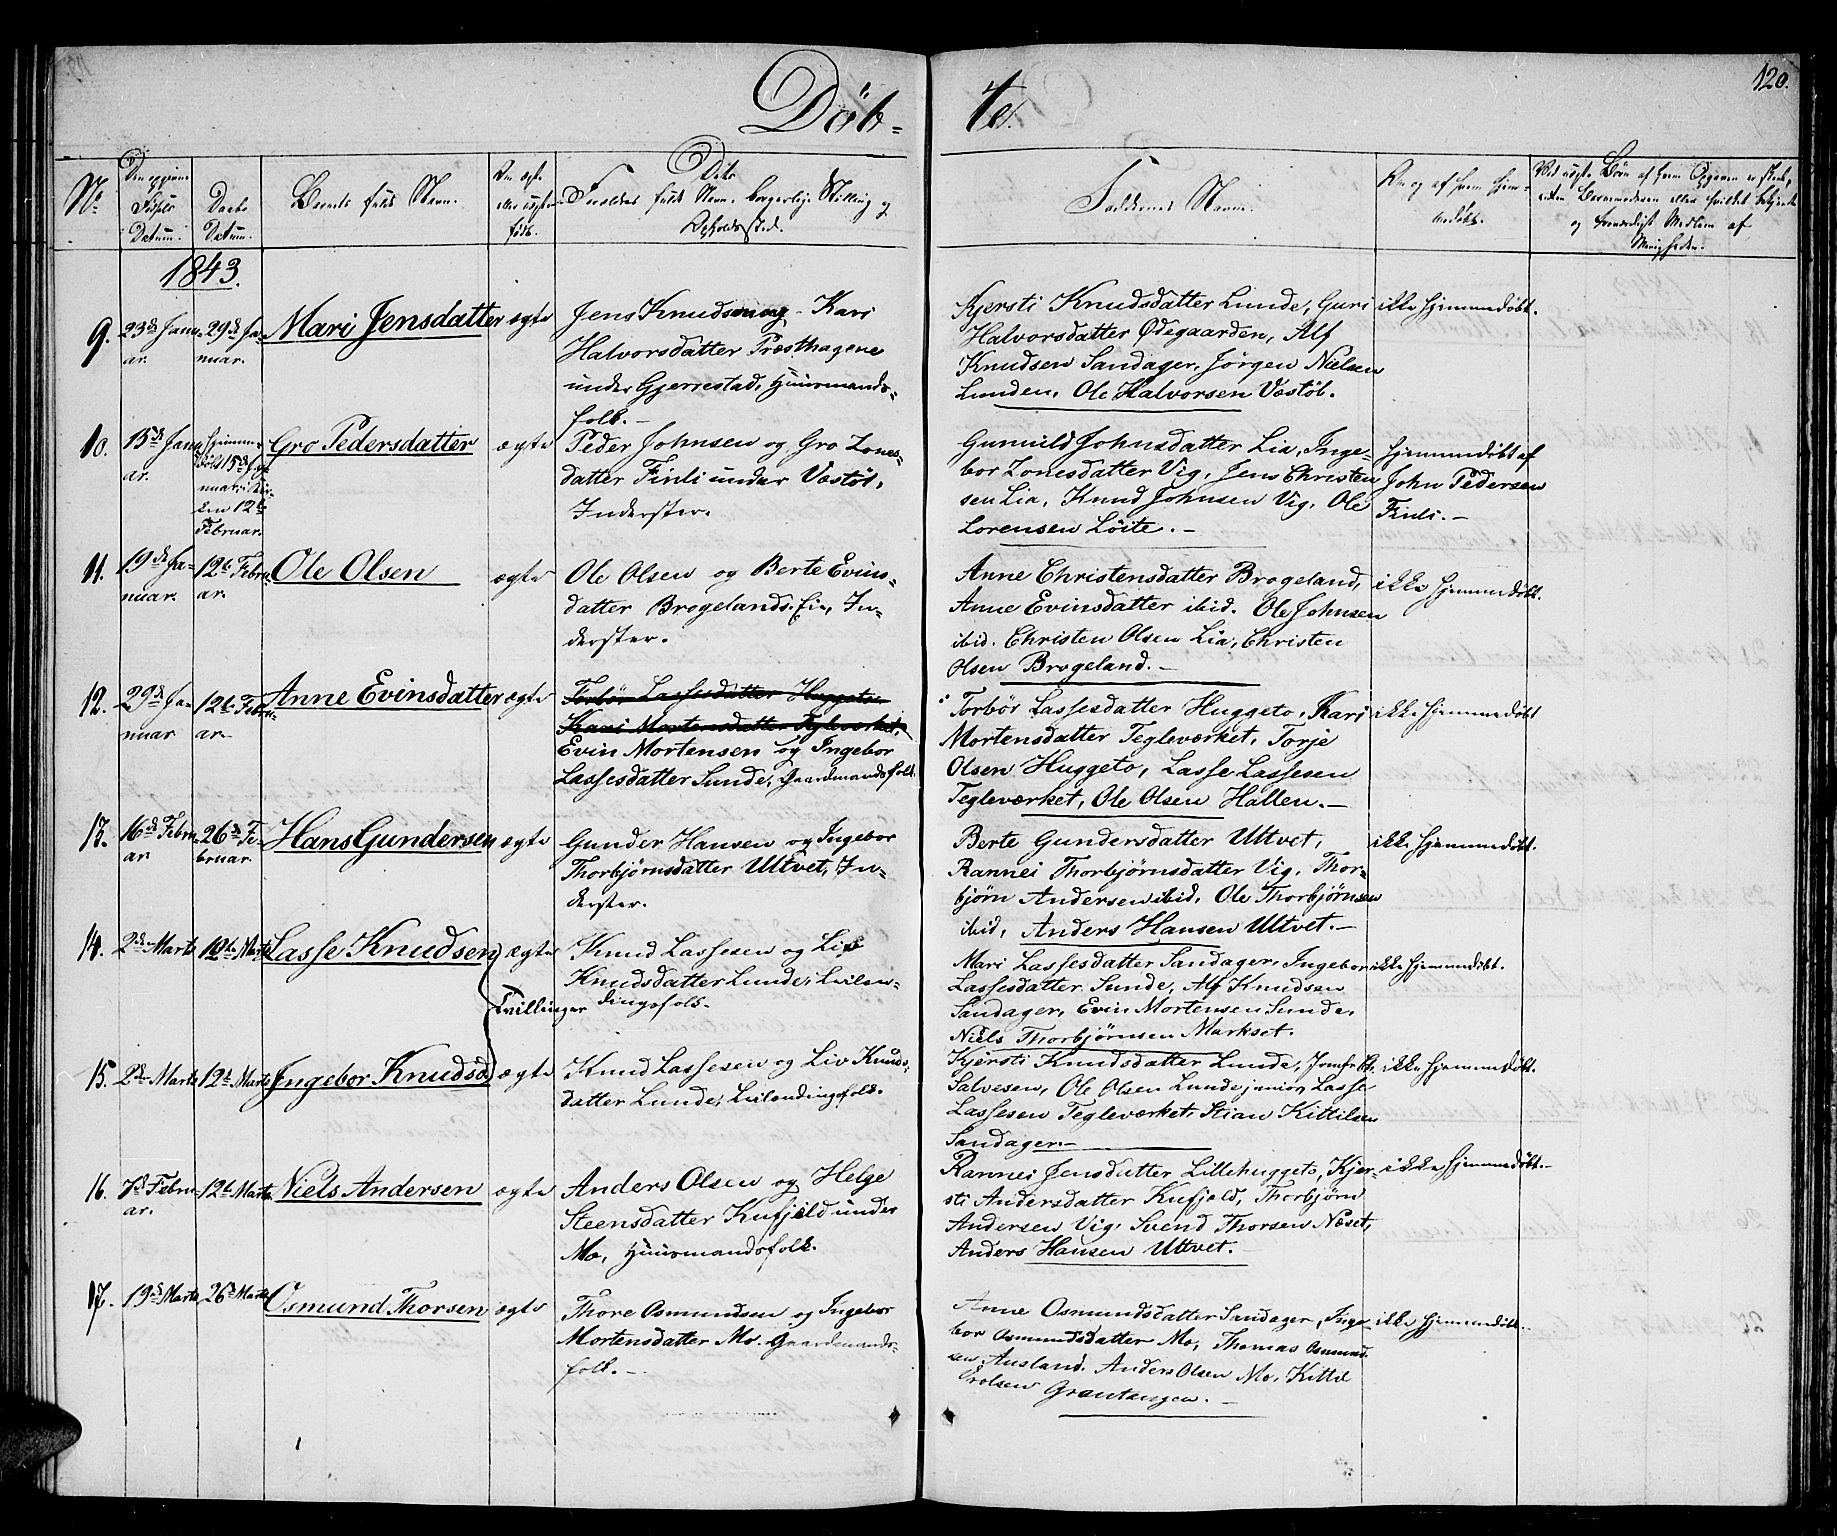 120.
Döb- te.
No
Den opgivne Födsels Datum.
Daabs Datum.
Barnets fulde Navn.
Om ægte eller uægte född.
Dito
Forældres fulde Navn, borgerlige Stilling og
Opholdssted.
Faddernes Navne.
Om og af hvem hjemmedöbt.
1843.
9. 23de Januar. 29de Januar. Mari Jensdatter ægte
Jens Knudsen og Kari
Halvorsdatter Præsthagene
under Gjerrestad, Huusmands-
folk.-
Kjersti Knudsdatter Lunde, Guri
Halvorsdatter Ödegaarden, Alf
Knudsen Sandager, Jörgen Nielsen
Lunden, Ole Halvorsen Vestöl.
ikke hjemmedöbt.
10. 15de Januar. hjemmedöbt 15de Januar, i Kirken 12te Februar. Gro Pedersdatter ægte
Peder Johnsen og Gro Zones-
datter Finli under Vestöl,
Inderster.
Gunuld Johnsdatter Lia, Inge-
bor Zonesdatter Vig, Jens Christen
sen Lia, Knud Johnsen Vig, Ole
Lorensen Löite.-
hjemmedöbt af
John Pedersen
Finli.-
11. 19de Januar. 12te Februar. Ole Olsen ægte
Ole Olsen og Berte Evins-
datter Brogelands Eie, In-
derster.
Anne Christensdatter Brogeland,
Anne Evinsdatter ibid. Ole Johnsen
ibid. Christen Olsen Lia, Christen
Olsen Brogeland.-
ikke hjemmedöbt.
12. 29de Januar 12te Februar. Anne Evinsdatter ægte
Torbör Lassesdatter Huggeto
Kari Mortensdatter Teglværket,
Evin Mortensen og Ingebor
Lassesdatter Sunde, Gaardmandsfolk.
Torbör Lassesdatter Huggeto, Kari
Mortensdatter Tegleværket, Torje
Olsen Huggeto, Lasse Lassesen
Tegleværket, Ole Olsen Hallen.-
ikke hjemmedöbt
13. 16de Februar 26de Februar. Hans Gundersen ægte
Gunder Hansen og Ingebor
Thorbjørnsdatter Ultvet, In-
derster.
Berte Gundersdatter Ultvet,
Rannei Thorbjørnsdatter Vig, Thor-
bjørn Andersen ibid, Ole Thorbjørnsen
ibid, Anders Hansen Ultvet.-
ikke hjemmedöbt.
14. 2de Marts 12te Marts Lasse Knudsen ægte
Knud Lassesen og Liv
Knudsdatter Lunde, Leilen-
dingsfolk.
Tvillinger
Mari Lassesdatter Sandager, Ingebor
Lassesdatter Sunde, Alf Knudsen
Sandager, Evin Mortensen Sunde,
Niels Thorbjørnsen Markset.
ikke hjemmedöbt.
15. 2de Marts 12te Marts Ingebor Knudsd. ægte
Knud Lassesen og Liv Knuds-
datter Lunde, Leilendingsfolk.
Kjersti Knudsdatter Lunde, Jomfru
Salvesen, Ole Olsen Lunde junior, Lasse
Lassesen Tegleværket, Stian Kittilsen
Sandager.-
ikke hjemmedöbt.
16. 7de Februar. 12te Marts Niels Andersen ægte
Anders Olsen og Helge
Steensdatter Kufjeld under
Mo, Huusmandsfolk.
Rannei Jensdatter Lillehuggeto, Kjer-
sti Andersdatter Kufjeld, Thorbjørn
Andersen Vig, Svend Thorsen Næset,
Anders Hansen Ultvet.-
ikke hjemmedöbt.-
17. 19de Marts 26de Marts Osmund Thorsen ægte
Thore Osmundsen og Ingebor
Mortensdatter Mo. Gaardmands-
folk.-
Anne Osmundsdatter Sandager, Inge-
bor Osmundsdatter Mo, Thomas Osmund-
sen Ausland. Anders Olsen Mo, Kittil
Grantangen.-
ikke hjemmedöbt.